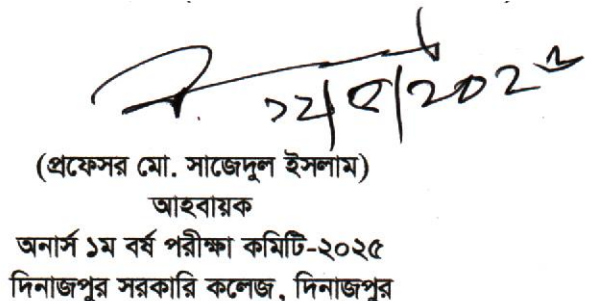 (প্রফেসর মো. সাজেদুল ইসলাম)
আহবায়ক
অনার্স ১ম বর্ষ পরীক্ষা কমিটি-২০২৫
দিনাজপুর সরকারি কলেজ, দিনাজপুর